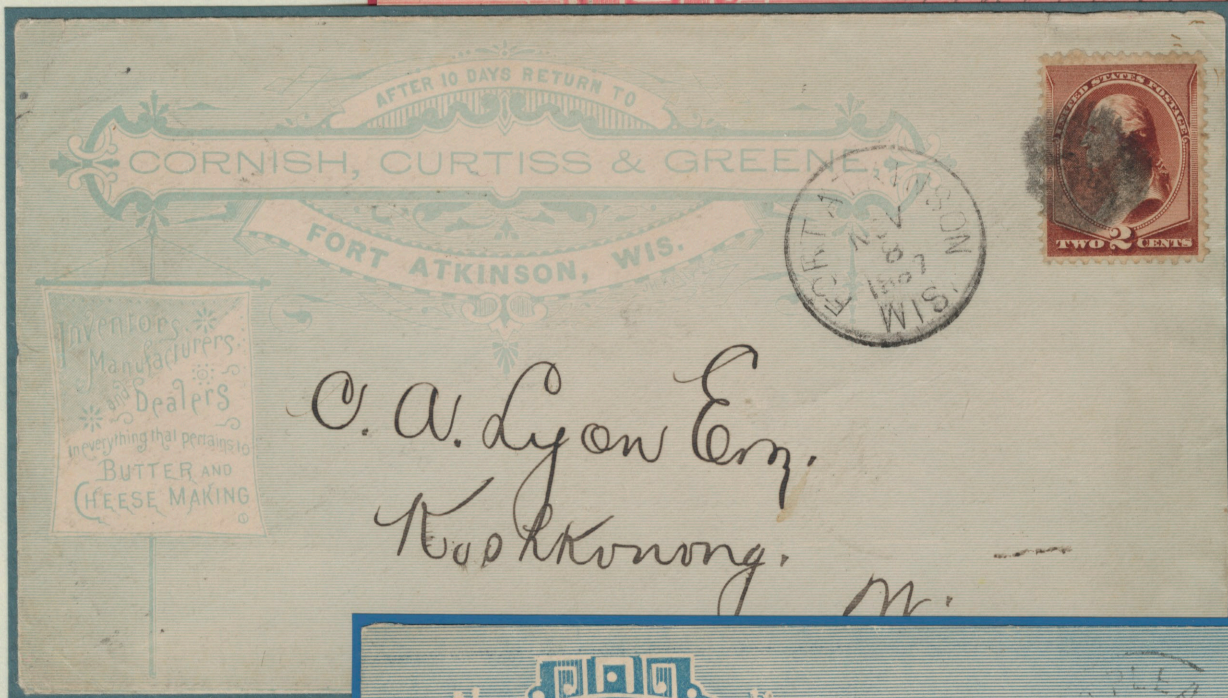 AFTER 10 DAYS RETURN TO
CORNISH, CURTISS & GREENE,
FORT ATKINSON, WIS.
Inventors,
Manufacturers,
and Dealers
in everything that pertains to
BUTTER AND
CHEESE MAKING
UNITED STATES POSTAGE
TWO 2 CENTS
FORT ATKINSON
WIS.
8
1887
C. A. Lyon Esq.
Koshkonong.